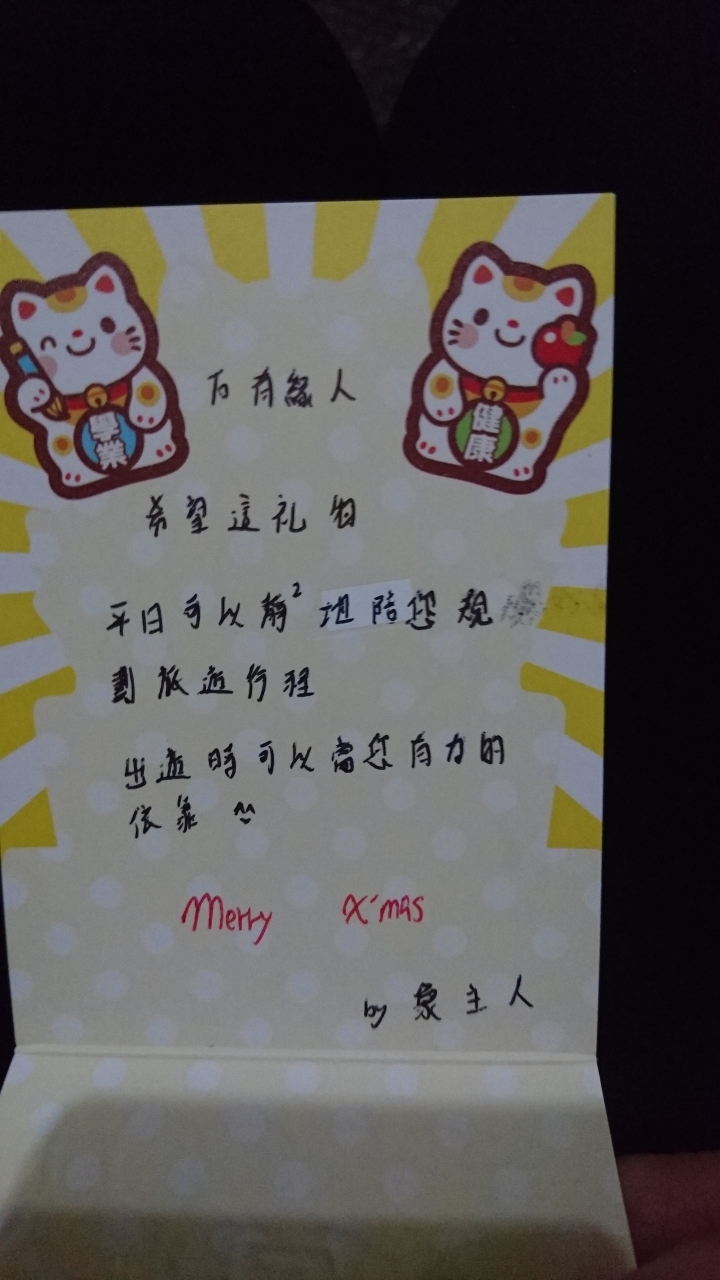 學業
健康
有緣人
希望這礼物
平日可以靜² 地陪您規
劃旅遊行程
出遊時可以當您有力的
依靠
Merry X'mas
by 象主人